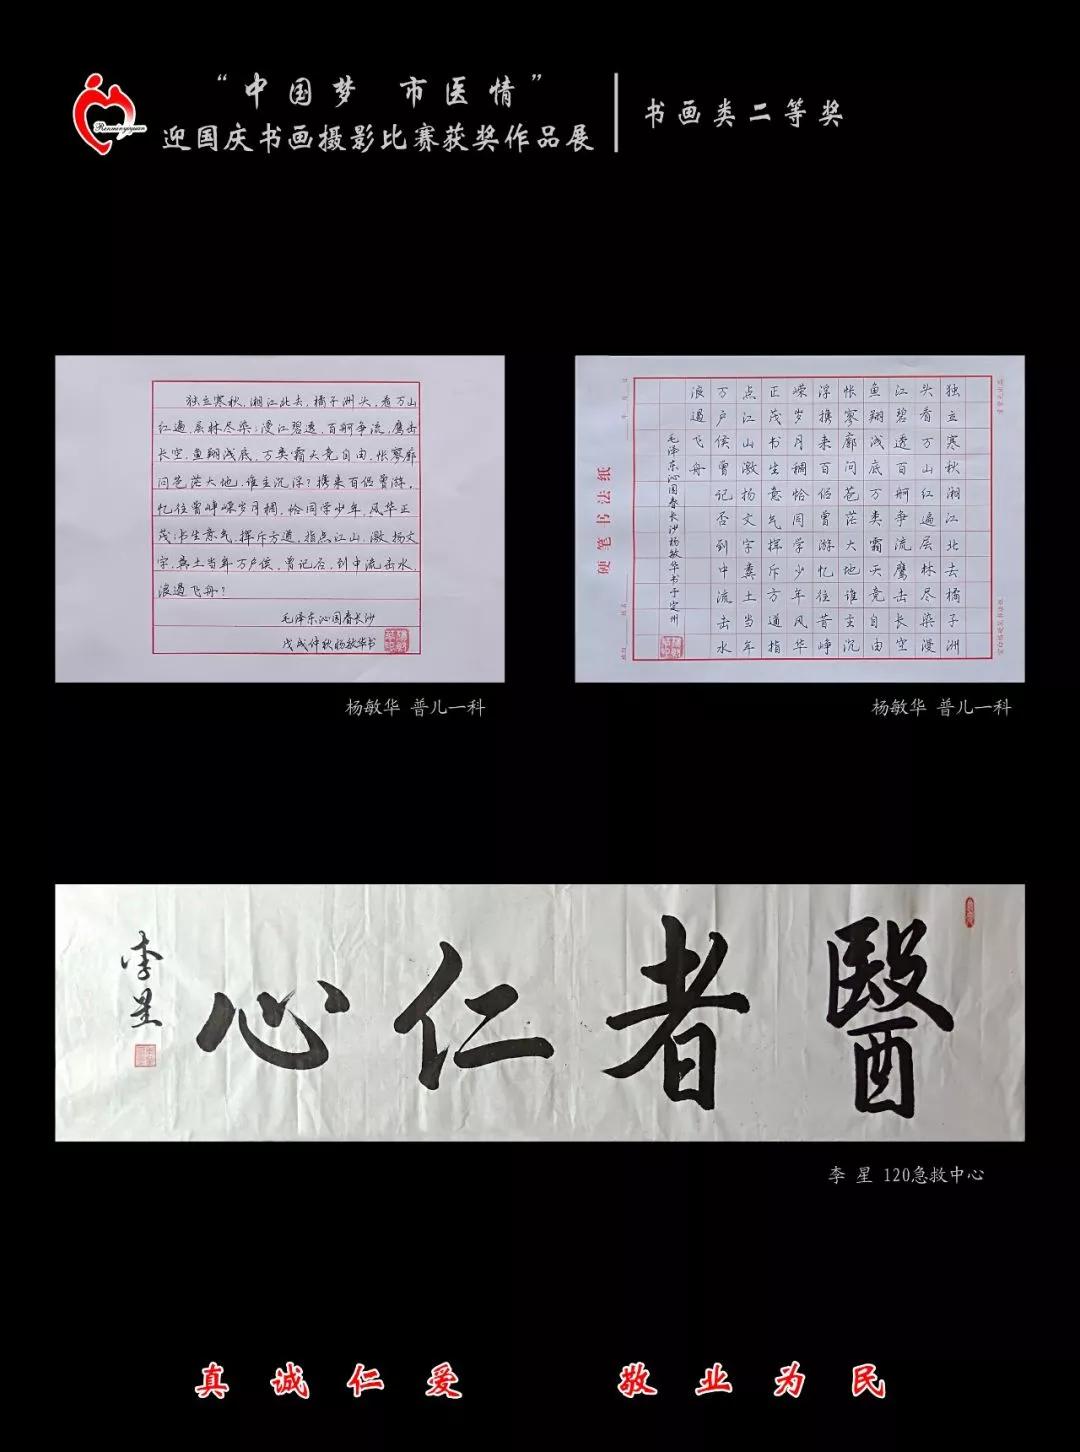 “中国梦 市医情”
迎国庆书画摄影比赛获奖作品展
书画类二等奖
Renminyiyuan
独立寒秋,湘江北去,橘子洲头,看万山
红遍,层林尽染;漫江碧透,百舸争流,鹰击
长空,鱼翔浅底,万类霜天竞自由,怅寥廓
问苍茫大地,谁主沉浮?携来百侣曾游,
忆往曾峥嵘岁月稠,恰同学少年,风华正
茂;书生意气,挥斥方遒,指点江山,激扬文
字,粪土当年万户侯,曾记否,到中流击水,
浪遏飞舟?
毛泽东沁园春长沙
戊戌仲秋杨敏华书
杨敏华 普儿一科
独立寒秋湘江北去橘子洲
头看万山红遍层林尽染漫
江碧透百舸争流鹰击长空
鱼翔浅底万类霜天竞自由
怅寥廓问苍茫大地谁主沉
浮携来百侣曾游忆往昔峥
嵘岁月稠恰同学少年风华
正茂书生意气挥斥方遒指
点江山激扬文字粪土当年
万户侯曾记否到中流击水
浪遏飞舟
毛泽东沁园春长沙杨敏华书于定州
硬笔书法纸
杨敏华 普儿一科
醫者仁心
李星
李 星 120急救中心
真诚仁爱 敬业为民